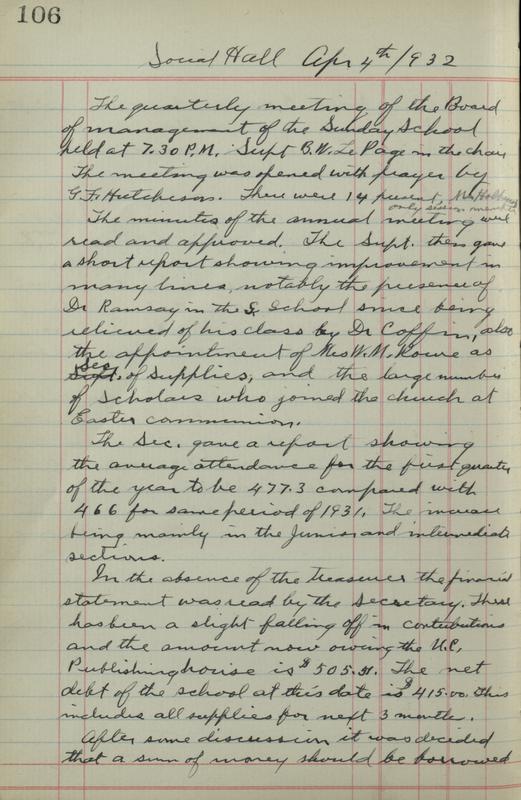 106
Social Hall Apr 4th/932
The quarterly meeting of the Board
of management of the Sunday School
held at 7.30 P.M. Supt B.W. LePage in the chair
The meeting was opened with prayer by
G.F. Hutcheson. There were 14 present, Mrs
only
The minutes of the annual meeting were
read and approved. The Supt. then gave
a short report showing improvement in
many lines, notably the presence of
Dr Ramsay in the S. School since being
relieved of his class by Dr Coffin, also
the appointment of Mrs W.M. Rowe as
Sec
Supt. of supplies, and the large number
of Scholars who joined the church at
Easter communion.
The Sec. gave a report showing
the average attendance for the first quarter
of the year to be 477.3 compared with
466 for same period of 1931. The increase
being mainly in the Junior and intermediate
sections.
In the absence of the Treasurer the financial
statement was read by the Secretary. There
has been a slight falling off in contributions
and the amount now owing the U.C.
Publishing house is $505.31. The net
debt of the school at this date is $415.00. This
includes all supplies for next 3 months.
After some discussion it was decided
that a sum of money should be borrowed